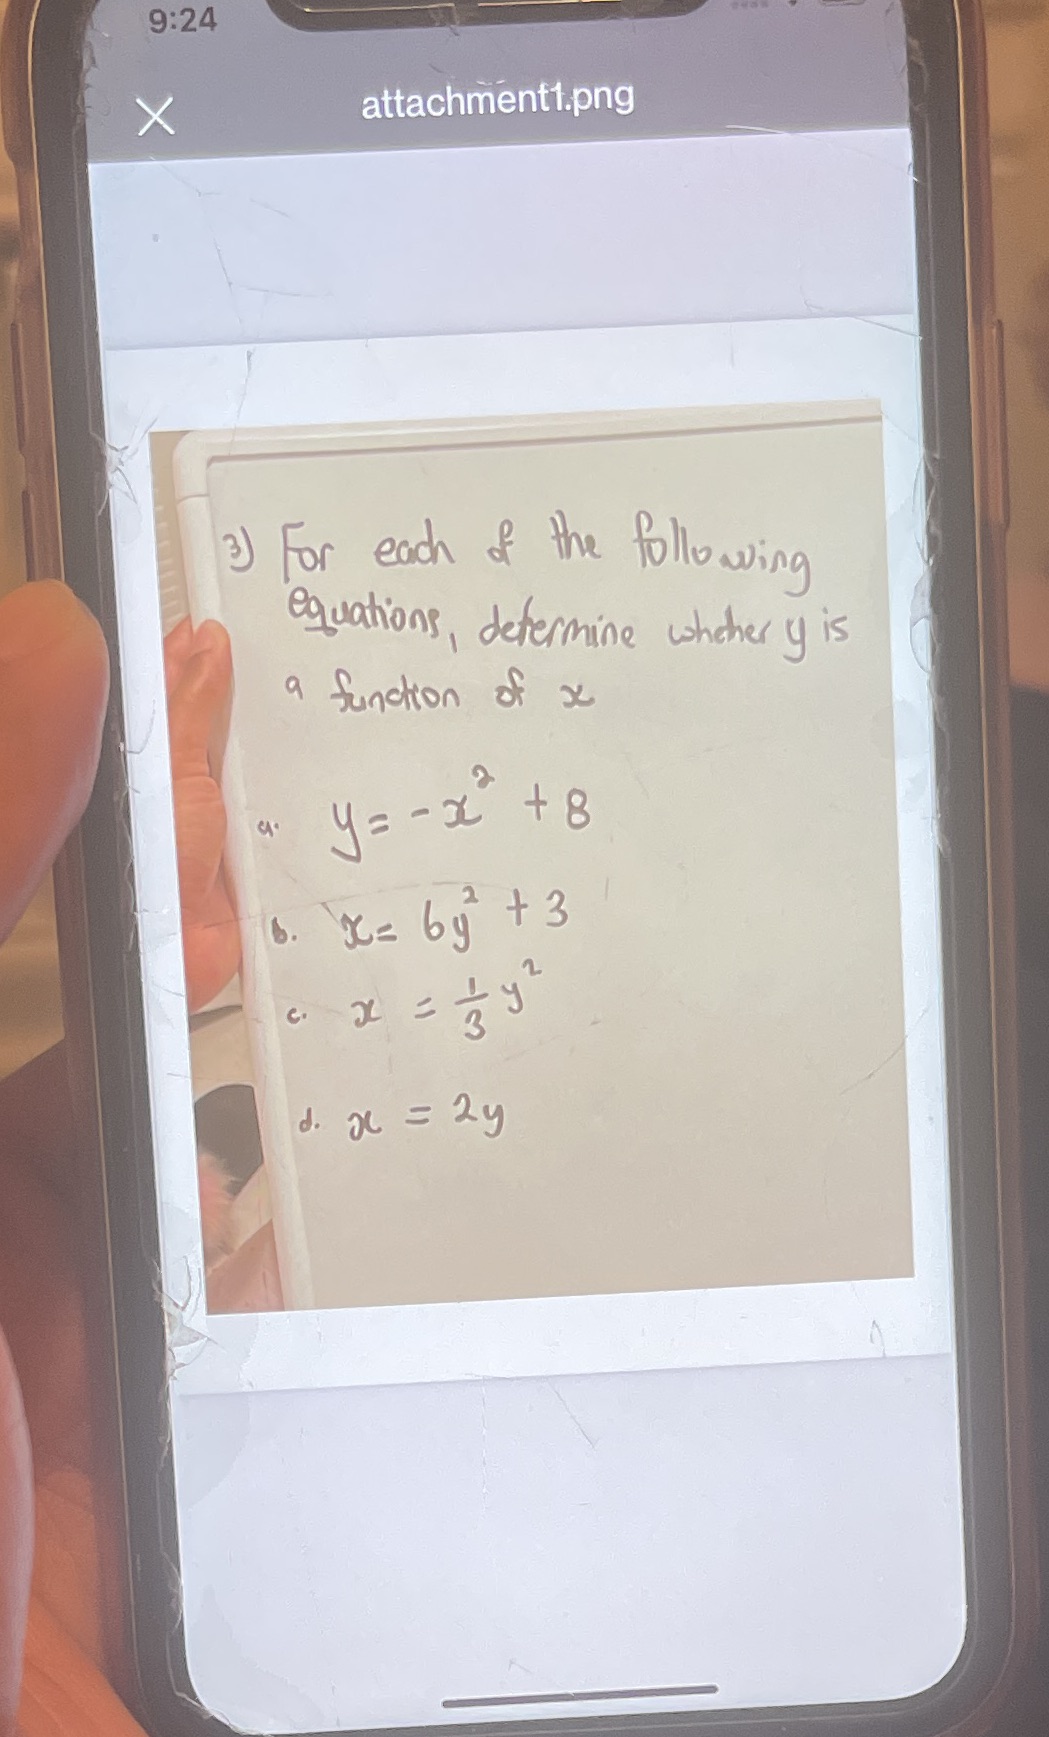 9:24
attachment1.png
3) For each of the following
equations, determine whether y is
a function of x
a. y = -x² + 8
b. x = 6y² + 3
c. x = 1/3 y²
d. x = 2y